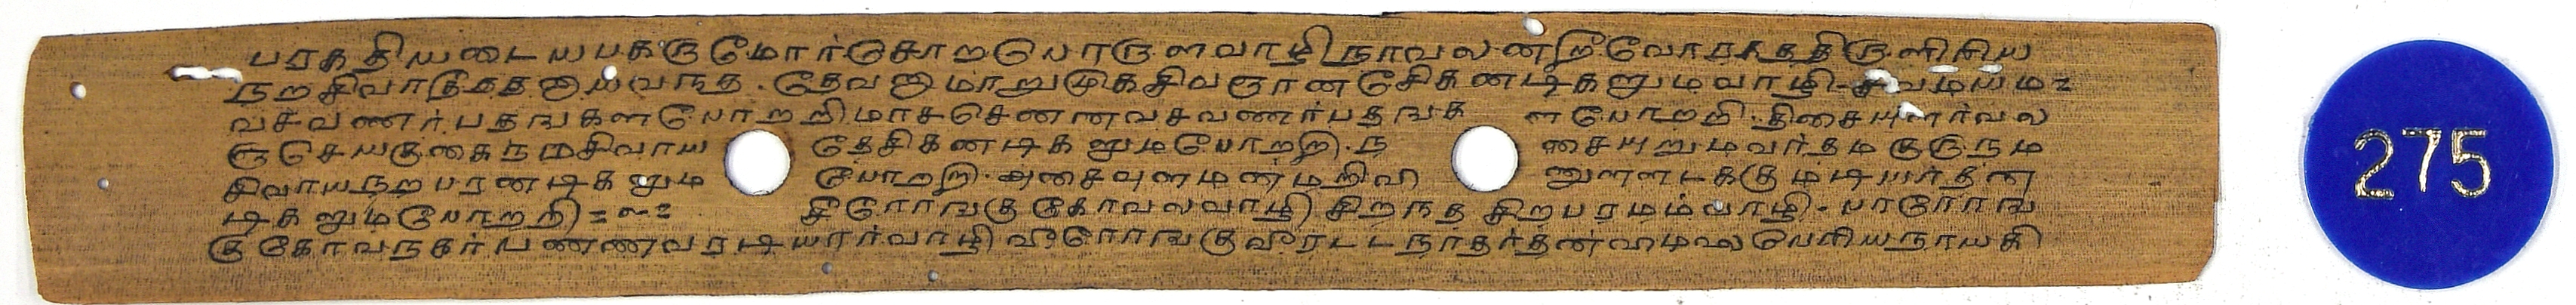 பரகதியடையபகருமோர்டுசூறபெரருளவாழிநாவலணறீவோரநததிருளிசிய
நறசிவாடுததனுயவநத.தேவனுமாறுமுகசிவஞானசேிகனடிகளுமவாழி-சிவமயம
வசவணர்பதஙகளபோறறிமாசசெனனவசவணர்பதஙக ளபோறறி.திசையுளர்வல
ஞசெயகுகைநமசிவாய தேசிகனடிகளுமபோறறி.ந சையுறுமவர்தம குருநம
சிவாயநறபரனடிகளும போறறி.அசைவுளமனமறிவி னுளளடககுமடியர்தன
டிகளுமபோறறி சீரோஙகுகோவலவாழி சிறநத சிறபரமமவாழி-பாரோங
குகோவநகர்பணணவரடியரர்வாழி வீரோஙகுவீரடடநாதர்தனவாமமெலபெரியநாயகி
275